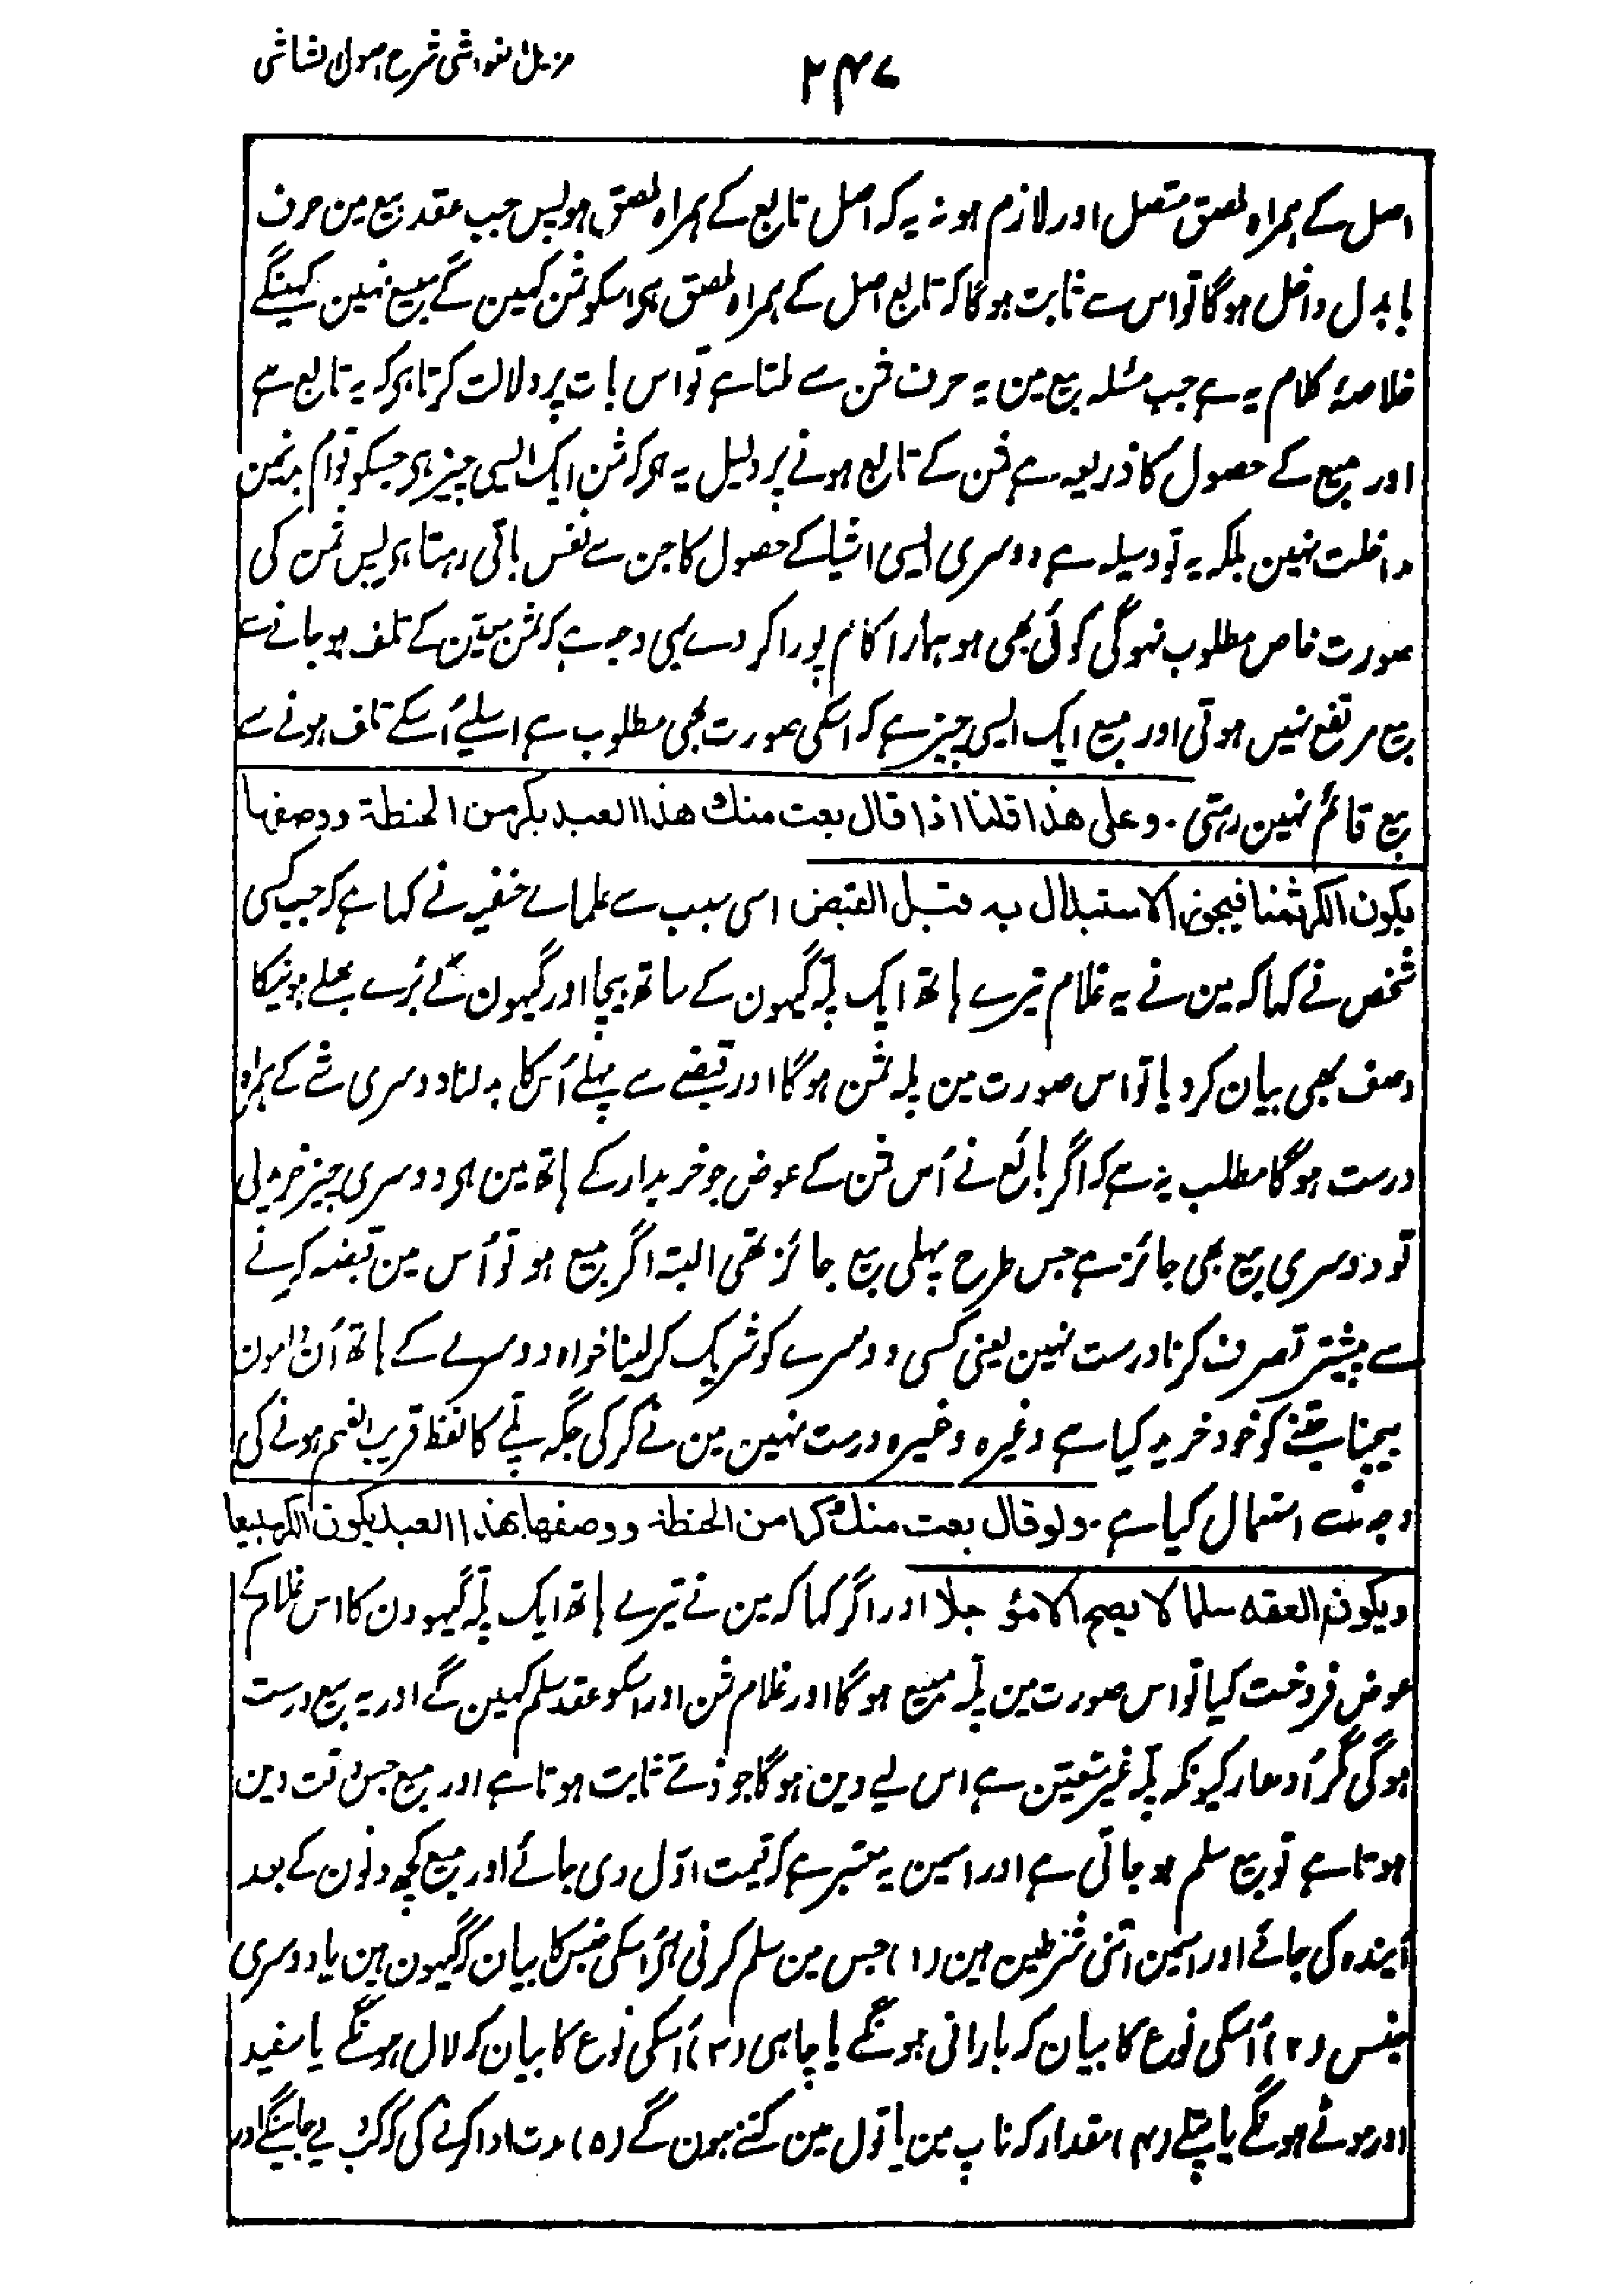 مزیل الغواشی شرح اصول الشاشی
۲۴۷
اصل کے ہمراہ ملصق متصل اور لازم ہو نہ یہ کہ اصل تابع کے ہمراہ ملصق ہو پس جب عقد بیع مین حرف
با بدل داخل ہوگا تو اس سے ثابت ہوگا کہ تابع اصل کے ہمراہ ملصق ہوا اسکو ثمن کہین گے مبیع نہین کہینگے
خلاصۂ کلام یہ ہے جب مسئلہ بیع مین یہ حرف ثمن سے ملتا ہے تو اس بات پر دلالت کرتا ہی کہ یہ تابع ہے
اور مبیع کے حصول کا ذریعہ ہے ثمن کے تابع ہونے پر دلیل یہ ہی کہ ثمن ایک ایسی چیز ہی جسکو قوام بدنمین
مداخلت نہین بلکہ یہ تو وسیلہ ہے دوسری ایسی اشیا کے حصول کا جن سے نفس باقی رہتا ہی پس ثمن کی
صورت خاص مطلوب نہوگی کوئی بھی ہو ہمارا کام پورا کر دے یہی وجہ ہے کہ ثمن معیّن کے تلف ہو جانے سے
بیع مرتفع نہیں ہوتی اور مبیع ایک ایسی چیز ہے کہ اسکی صورت بھی مطلوب ہے اسلیے اُسکے تلف ہونے سے
بیع قائم نہین رہتی ۔ وعلی هذا قلنا اذا قال بعت منك هذا العبد بکر من الحنطة ووصفها
یکون الکر ثمنا فیجوز الاستبدال به قبل القبض اسی سبب سے علمائے حنفیہ نے کہا ہے کہ جب کسی
شخص نے کہا کہ مین نے یہ غلام تیرے ہاتھ ایک پلّہ گیہون کے ساتھ بیچا اور گیہون کے بُرے بھلے ہونیکا
وصف بھی بیان کر دیا تو اس صورت مین پلہ ثمن ہوگا اور قبضے سے پہلے اُسکا بدلنا دوسری شے کے ہمراہ
درست ہوگا مطلب یہ ہے کہ اگر بائع نے اُس ثمن کے عوض جو خریدار کے ہاتھ مین ہی دوسری چیز خرید لی
تو دوسری بیع بھی جائز ہے جس طرح پہلی بیع جائز تھی البتہ اگر مبیع ہو تو اُس مین قبضہ کرنے
سے پیشتر تصرف کرنا درست نہین یعنی کسی دوسرے کو شریک کر لینا خواہ دوسرے کے ہاتھ اُن دامون
بیچنا جتنے کو خود خرید کیا ہے وغیرہ وغیرہ درست نہین مین نے کر کی جگہ پلّے کا لفظ قریب الفہم ہونے کی
وجہ سے استعمال کیا ہے ۔ ولو قال بعت منك کرا من الحنطة ووصفها بهذا العبد یکون الکر مبیعا
ویکون العقد سلما لا یصح الا مؤجلا اور اگر کہا کہ مین نے تیرے ہاتھ ایک پلّہ گیہوون کا اس غلام کے
عوض فروخت کیا تو اس صورت مین پلّہ مبیع ہوگا اور غلام ثمن اور اسکو عقد سلم کہین گے اور یہ بیع درست
ہوگی مگر اُدھار کیونکہ پلّہ غیر متعیّن ہے اس لیے دین ہوگا جو ذمّے ثابت ہوتا ہے اور مبیع جس وقت دین
ہوتا ہے تو بیع سلم ہو جاتی ہے اور اسمین یہ معتبر ہے کہ قیمت اوّل دی جائے اور مبیع کچھ دنون کے بعد
آیندہ لی جائے اور اسمین اتنی شرطین ہین (۱) جس مین سلم کرنی ہی اُسکی جنس کا بیان کہ گیہون ہین یا دوسری
جنس (۲) اُسکی نوع کا بیان کہ بارانی ہونگے یا چاہی (۳) اُسکی نوع کا بیان کہ لال ہونگے یا سفید
اور موٹے ہونگے یا پتلے (۴) مقدار کہ ناپ مین یا تول مین کتنے ہون گے (۵) مدت ادا کرنے کی کہ کب لیے جاینگے اور